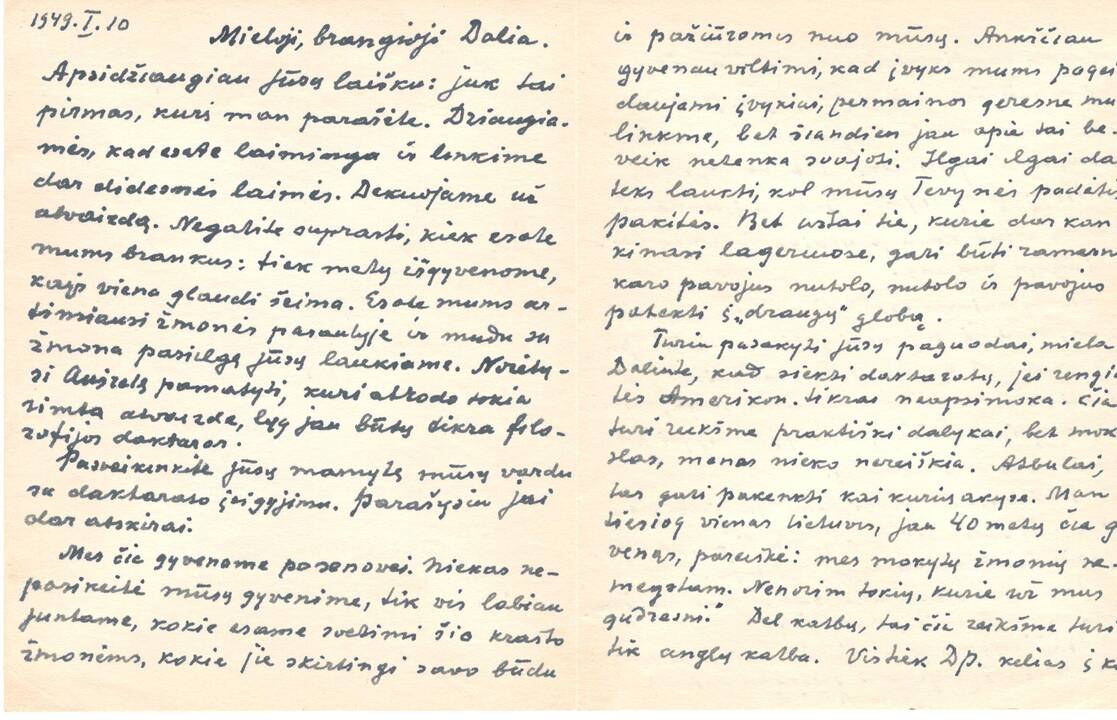 1949.I.10
Mieloji, brangioji Dalia.
Apsidžiaugiau jūsų laišku: juk tai
pirmas, kurį man parašėte. Džiaugia-
mės, kad esate laiminga ir linkime
dar didesnės laimės. Dekuojame už
atvaizdą. Negalite suprasti, kiek esate
mums brankus: tiek metų išgyvenome,
kaip viena glaudi šeima. Esate mums ar-
timiausi žmonės pasaulyje ir mudu su
žmona pasiilgę jūsų laukiame. Norėtų-
si Aušrelę pamatyti, kuri atrodo tokia
rimta atvaizde, lyg jau būtų tikra filo-
zofijos daktaras.
Pasveikinkite jūsų mamytę mūsų vardu
su daktarato įsigyjimu. Parašysiu jai
dar atskirai.
Mes čia gyvename posenovei. Niekas ne-
pasikeitė mūsų gyvenime, tik vis labiau
juntame, kokie esame svetimi šio krašto
žmonėms, kokie jie skirtingi savo būdu
ir pažiūromis nuo mūsų. Ankščiau
gyvenau viltimi, kad įvyks mums pagei
daujami įvykiai, permainos geresne mu
likkme, bet šiandien jau apie tai be
veik netenka svajoti. Ilgai ilgai da
teks laukti, kol mūsų Tevynės padėtis
pakitės. Bet užtai tie, kurie dar kan
kinasi lageriuose, gali būti ramesni
karo pavojus nutolo, nutolo ir pavojus
patekti į „draugų" globą.
Turiu pasakyti jūsų paguodai, miela
Daliute, kad siekti daktaratų, jei rengia
tės Amerikon. tikrai neapsimoka. Čia
turi reikšmę praktiški dalykai, bet mok
slas, menas nieko nereiškia. Atbulai,
tas gali pakenkti kai kurių akyse. Man
tiesiog vienas lietuvis, jau 40 metų čia g
venąs, pareiškė: mes mokytų žmonių ne
megstam. Nenorim tokių, kurie už mus
gudresni." Del kalbų, tai čia reikšmę turi
tik anglų kalba. Vistiek DP. kelias į